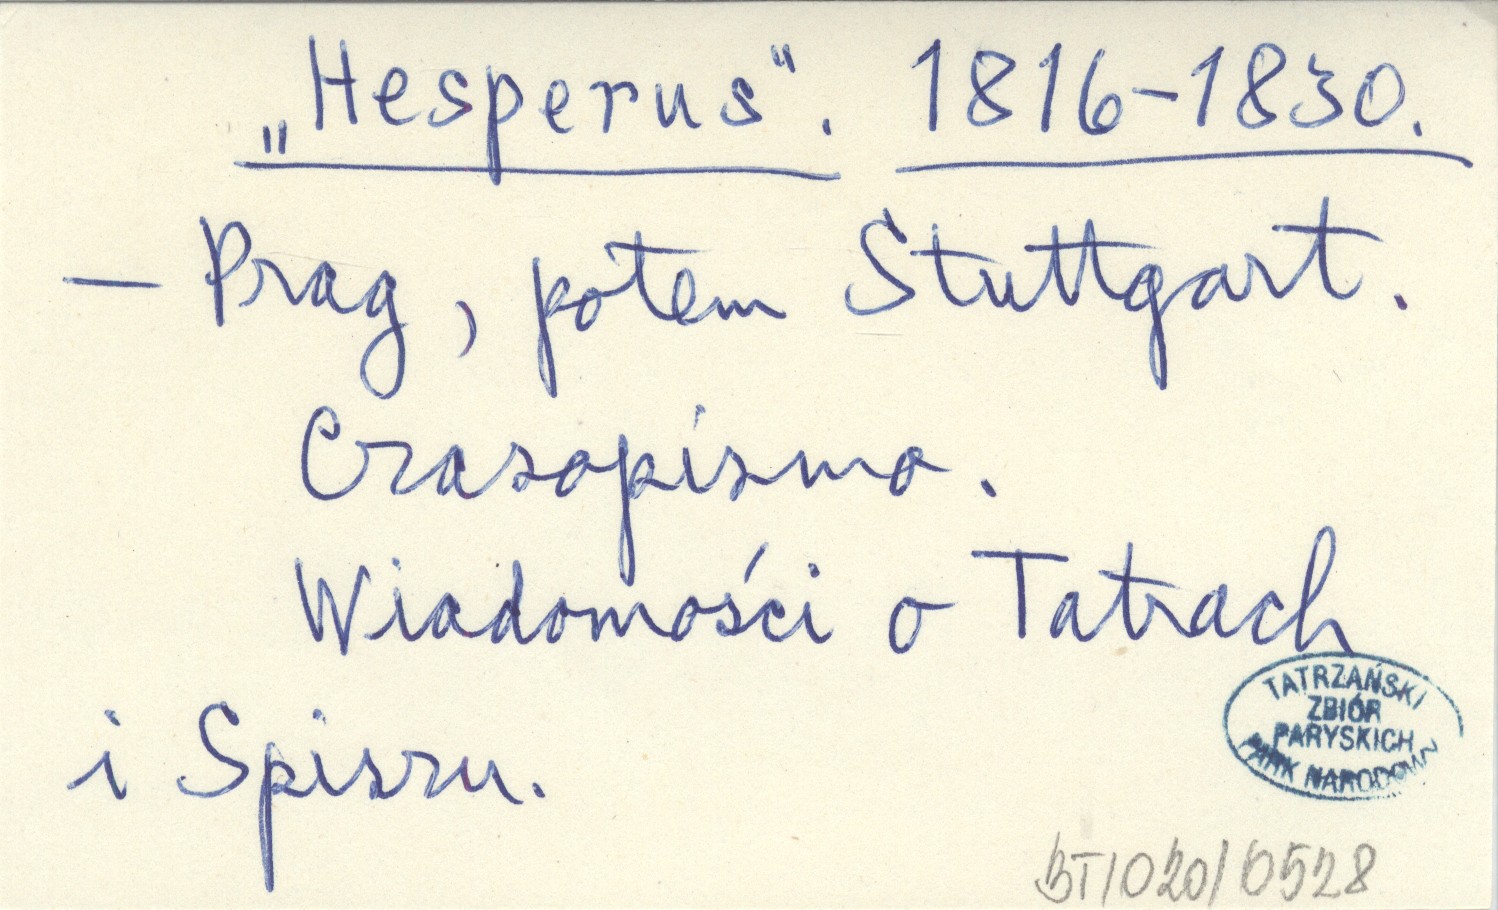 „Hesperus“. 1816-1830.
— Prag, potem Stuttgart.
Czasopismo.
Wiadomości o Tatrach
i Spiszu.
TATRZAŃSKI
ZBIÓR
PARYSKICH
PARK NARODOWY
BT/020/0528